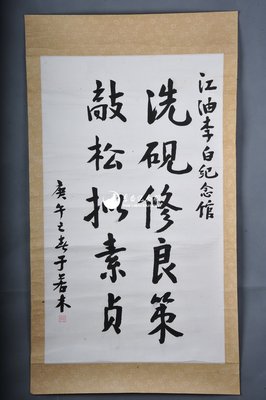 江油李白纪念馆
洗砚修良策
敲松拟素贞
庚午之春于若木